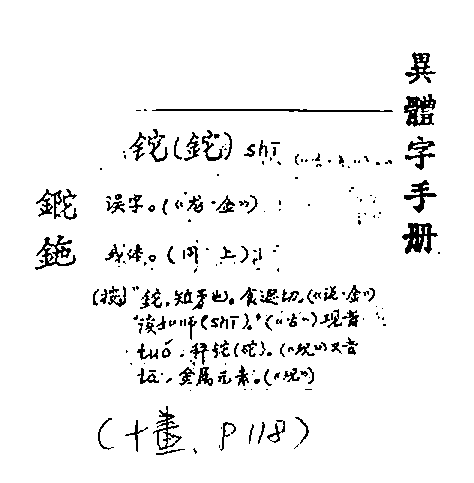 異體字手册
鉈(鉈) shī
误字。(《龙·金》)
鉇 或体。(同上)
(按)"鉈,短矛也。食遮切。(《说·金》)
读如师(shī)。"(《古》)现音
tuó,秤铊(砣)。(《现》)又音
tā,金属元素。(《现》)
(十畫、P118)